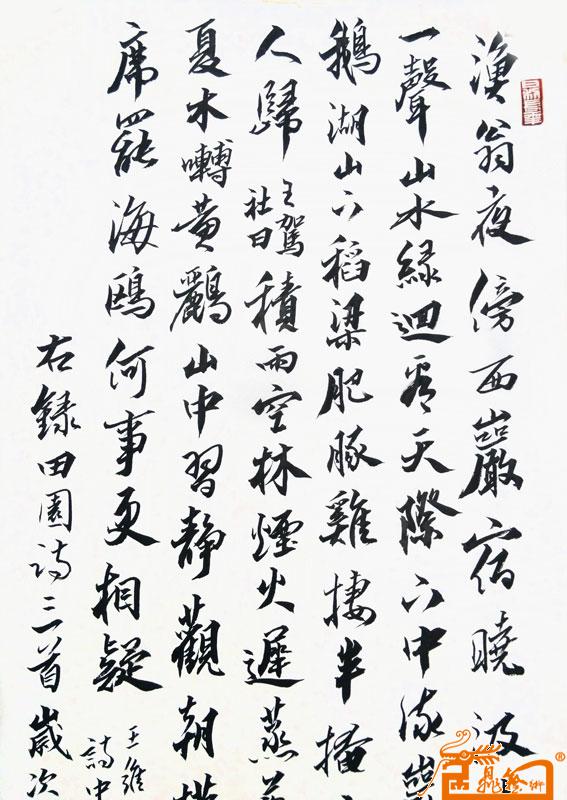 漁翁夜傍西巖宿曉汲
一聲山水緑迴看天際下中流巖
鵝湖山下稻粱肥豚雞棲半掩
人歸 王駕社日 積雨空林煙火遲蒸
夏木囀黃鸝山中習靜觀朝
席罷海鷗何事更相疑 王維詩中
右録田園詩三首歲次